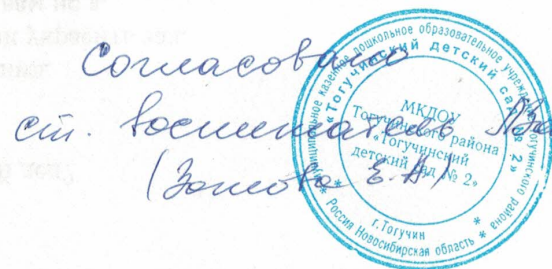 Согласовано
ст. воспитатель
Муниципальное казенное дошкольное образовательное учреждение Тогучинского района
«Тогучинский детский сад № 2»
МКДОУ
Тогучинского района
«Тогучинский
детский сад № 2»
г. Тогучин
* Россия Новосибирская область *